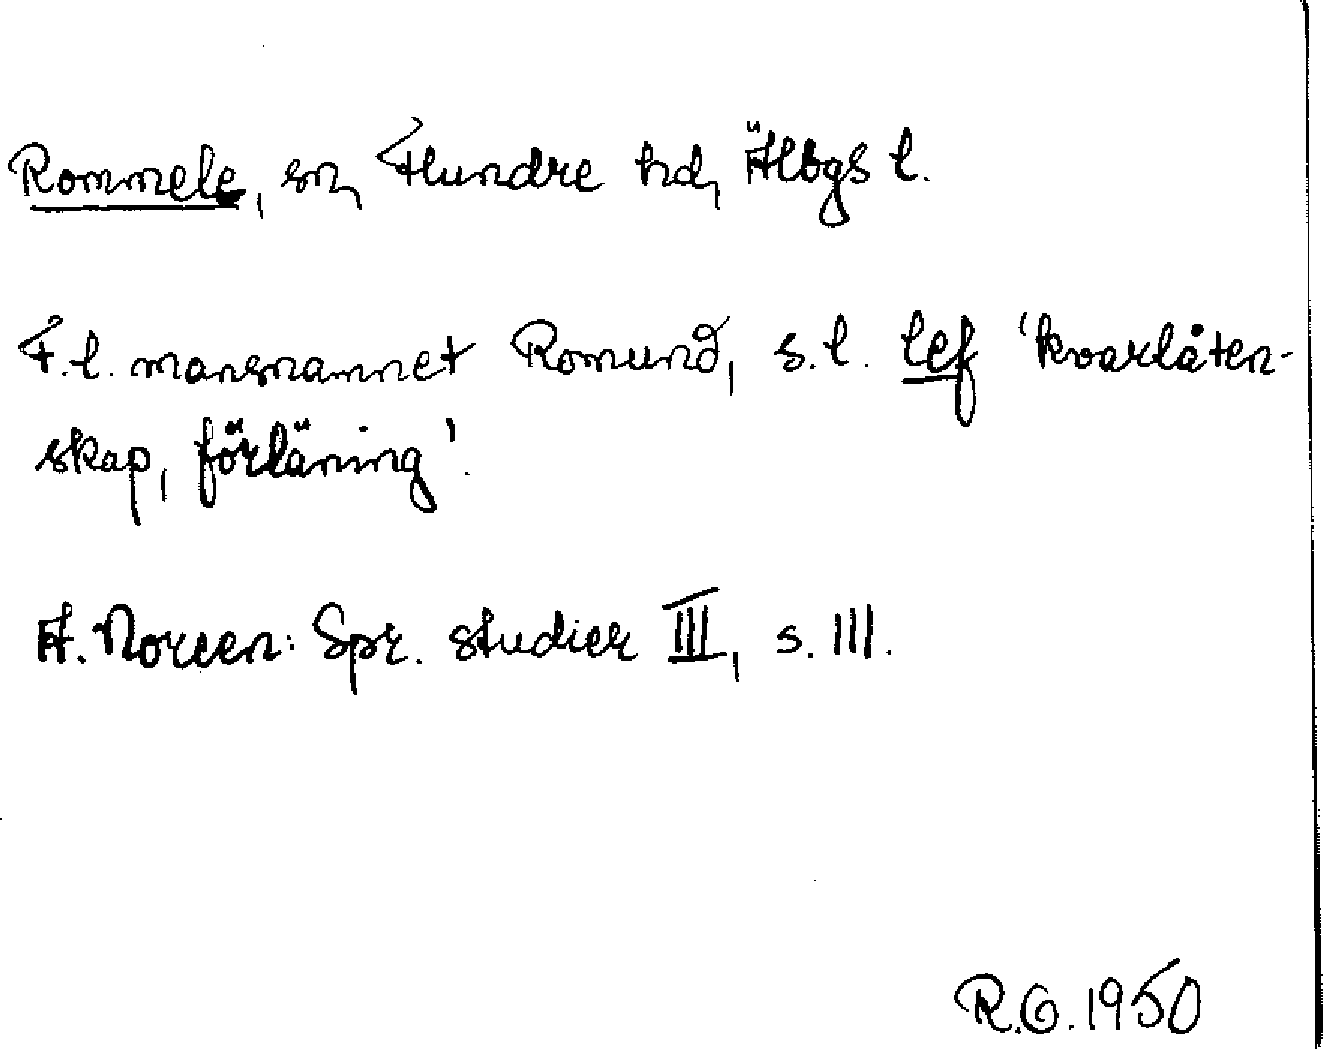 Rommele, sn, Flundre hd, Älvbgs l.
F.l. mansnamnet Romund, s.l. lef 'kvarlåten-
skap, förläning'.
A. Noreen: Spr. studier III, s. 111.
R.G. 1950